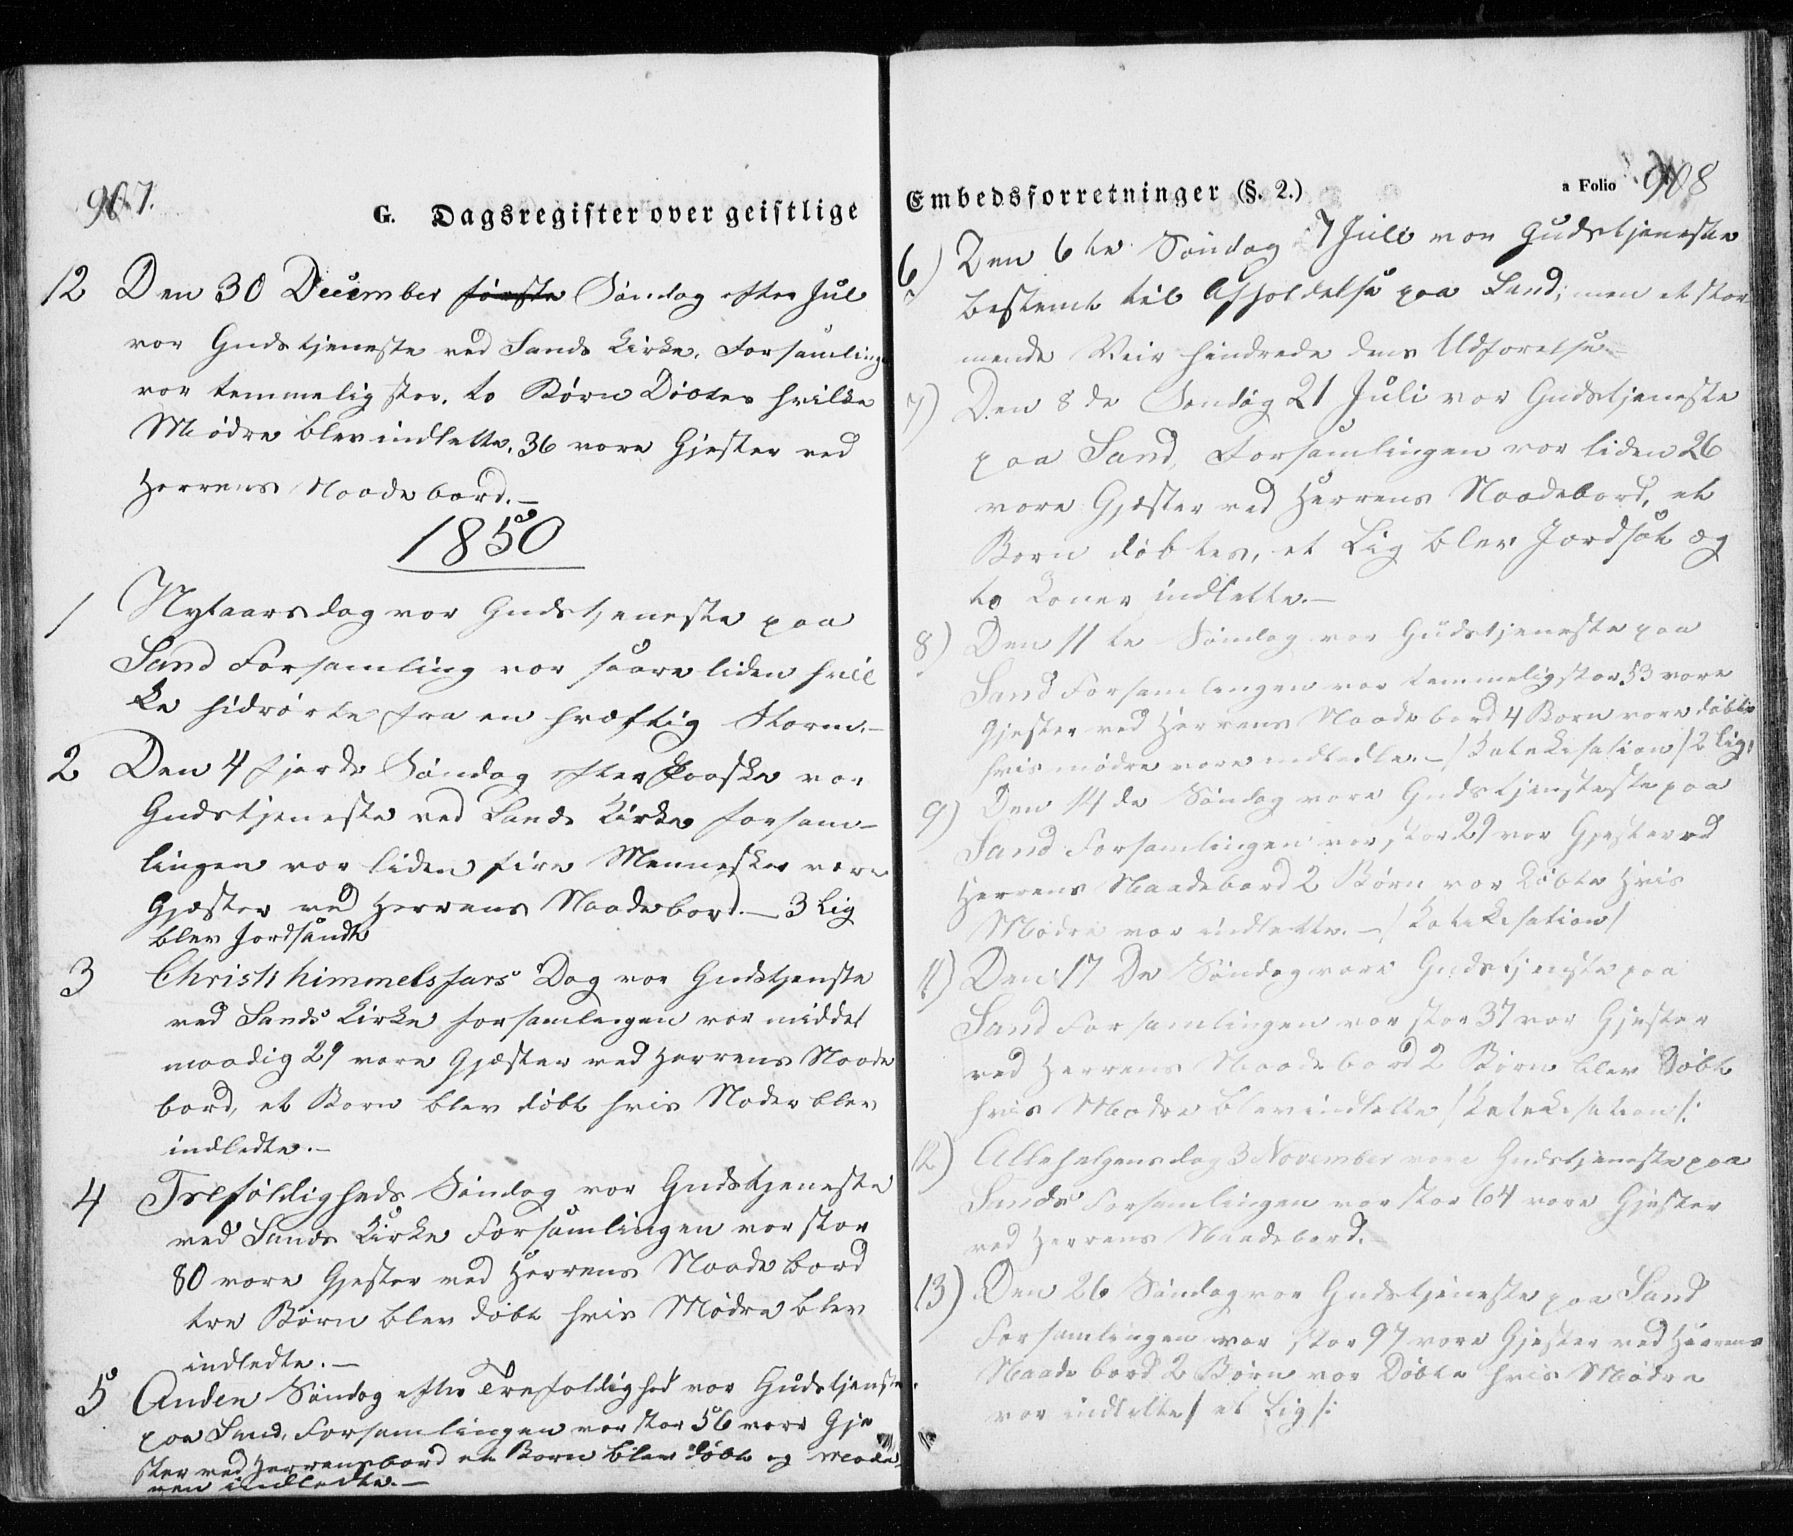 907.
G. Dagsregister over geistlige
12 Den 30 December første Søndag efter Jul
var Gudstjeneste ved Sands Kirke. Forsamlingen
var temmelig stor. to Børn Døbtes hvilke
Mødre blev indlette. 36 vare Gjester ved
Herrens Naadebord.—
1850
1 Nytaarsdag var Gudstjeneste paa
Sand Forsamling var saare liden hvil
ke hidrørte fra en hræftig Storm.—
2 Den 4 fjerde Søndag efter Paaske var
Gudstjeneste ved Sands Kirke forsam-
lingen var liden fire Mennesker vare
Gjæster ved Herrens Naadebord.— 3 Lig
blev Jordsandt
3 Christi himmelsfars Dag var Gudstjenste
ved Sands Kirke forsamlingen var middel
maadig 29 vare Gjæster ved Herrens Naade
bord, et Barn blev døbt hvis Moder blev
indledte.—
4 Trefoldigheds Søndag var Gudstjeneste
ved Sands Kirke Forsamlingen var stor
80 vare Gjester ved Herrens Naadebord
tre Børn blev døbt hvis Mødre blev
indledte.—
5 Anden Søndag efter Trefoldighed var Gudstjenste
paa Sand, Forsamlingen var stor 56 vare Gje
ster ved Herrensbord et Barn blev døbt og Mode-
ren indledte.—
Embedsforretninger (§. 2.)
a Folio 908
6) Den 6te Søndag 7 Juli var Gudstjeneste
bestemt til Afholdelse paa Sand; men et stor
mende Veir hindrede dens Udførelse.—
7) Den 8de Søndag 21 Juli var Gudstjeneste
paa Sand, Forsamlingen var liden 26
vare Gjæster ved Herrens Naadebord, et
Barn døbtes, et Lig blev Jordsat og
to Koner indlette.—
8) Den 11te Søndag var Gudstjeneste paa
Sand Forsamlingen var temmelig stor 53 vare
Gjester ved Herrens Naadebord 4 Børn vare døbte
hvis mødre vare indledte.— /Katekisation/ 2 Lig.
9) Den 14de Søndag vare Gudstjensteste paa
Sand Forsamlingen var stor 29 var Gjester ved
Herrens Naadebord 2 Børn var Døbte Hvis
Mødre var indlette.— /Katekisation/
11) Den 17De Søndag vare Gudstjenste paa
Sand Forsamlingen var stor 37 var Gjester
ved Herrens Naadebord 2 Børn blev Døbt
hvis Mødre blev indlette /Katekisation/:
12) Allehelgensdag 3 November vare Gudstjeneste paa
Sands Forsamlingen var stor 64 vare Gjester
ved Herrens Naadebord.
13) Den 26 Søndag var Gudstjeneste paa Sand
Forsamlingen var stor 97 vare Gjester ved Herrens
Naadebord 2 Børn var Døbte hvis Mødre
var indlette/ et Lig/: